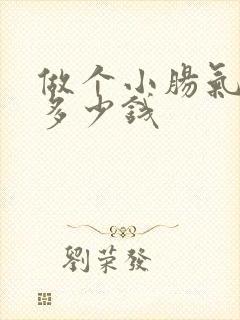 做个小腸氣
多少錢
劉荣發